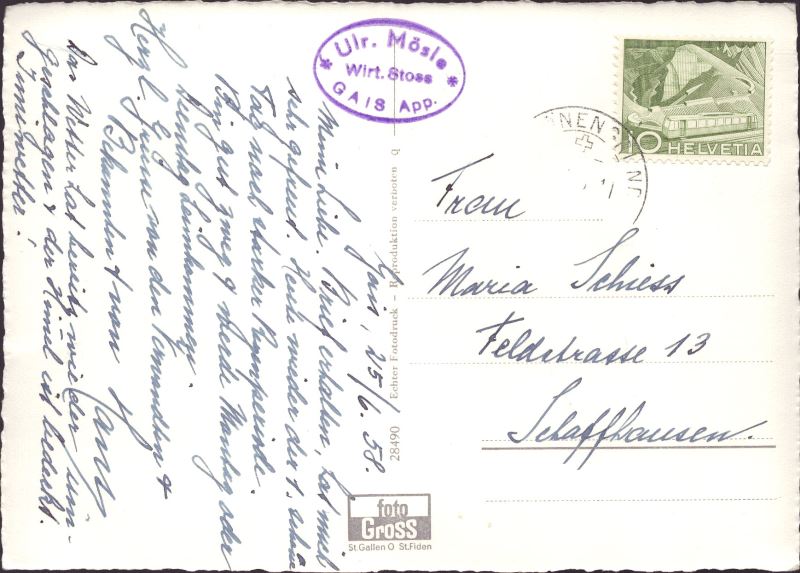 Gais, 25/6. 58.
Mein Lieb. Brief erhalten, hat mich
sehr gefreut. Heute wieder der 1. schöne
Tag nach starker Regenperiode.
Bin gut zweg & werde Montag oder
Dienstag heimkommen.
Herzl. Grüsse von den Verwandten &
Bekannten & von
Hans
Das Wetter hat bereits wieder um-
geschlagen & der Himel ist bedeckt.
Ulr. Mösle
Wirt. Stoss
GAIS App.
28490 Echter Fotodruck – Reproduktion verboten Q
foto
Gross
St. Gallen O St. Fiden
10 HELVETIA
Frau
Maria Schiess
Feldstrasse 13
Schaffhausen.